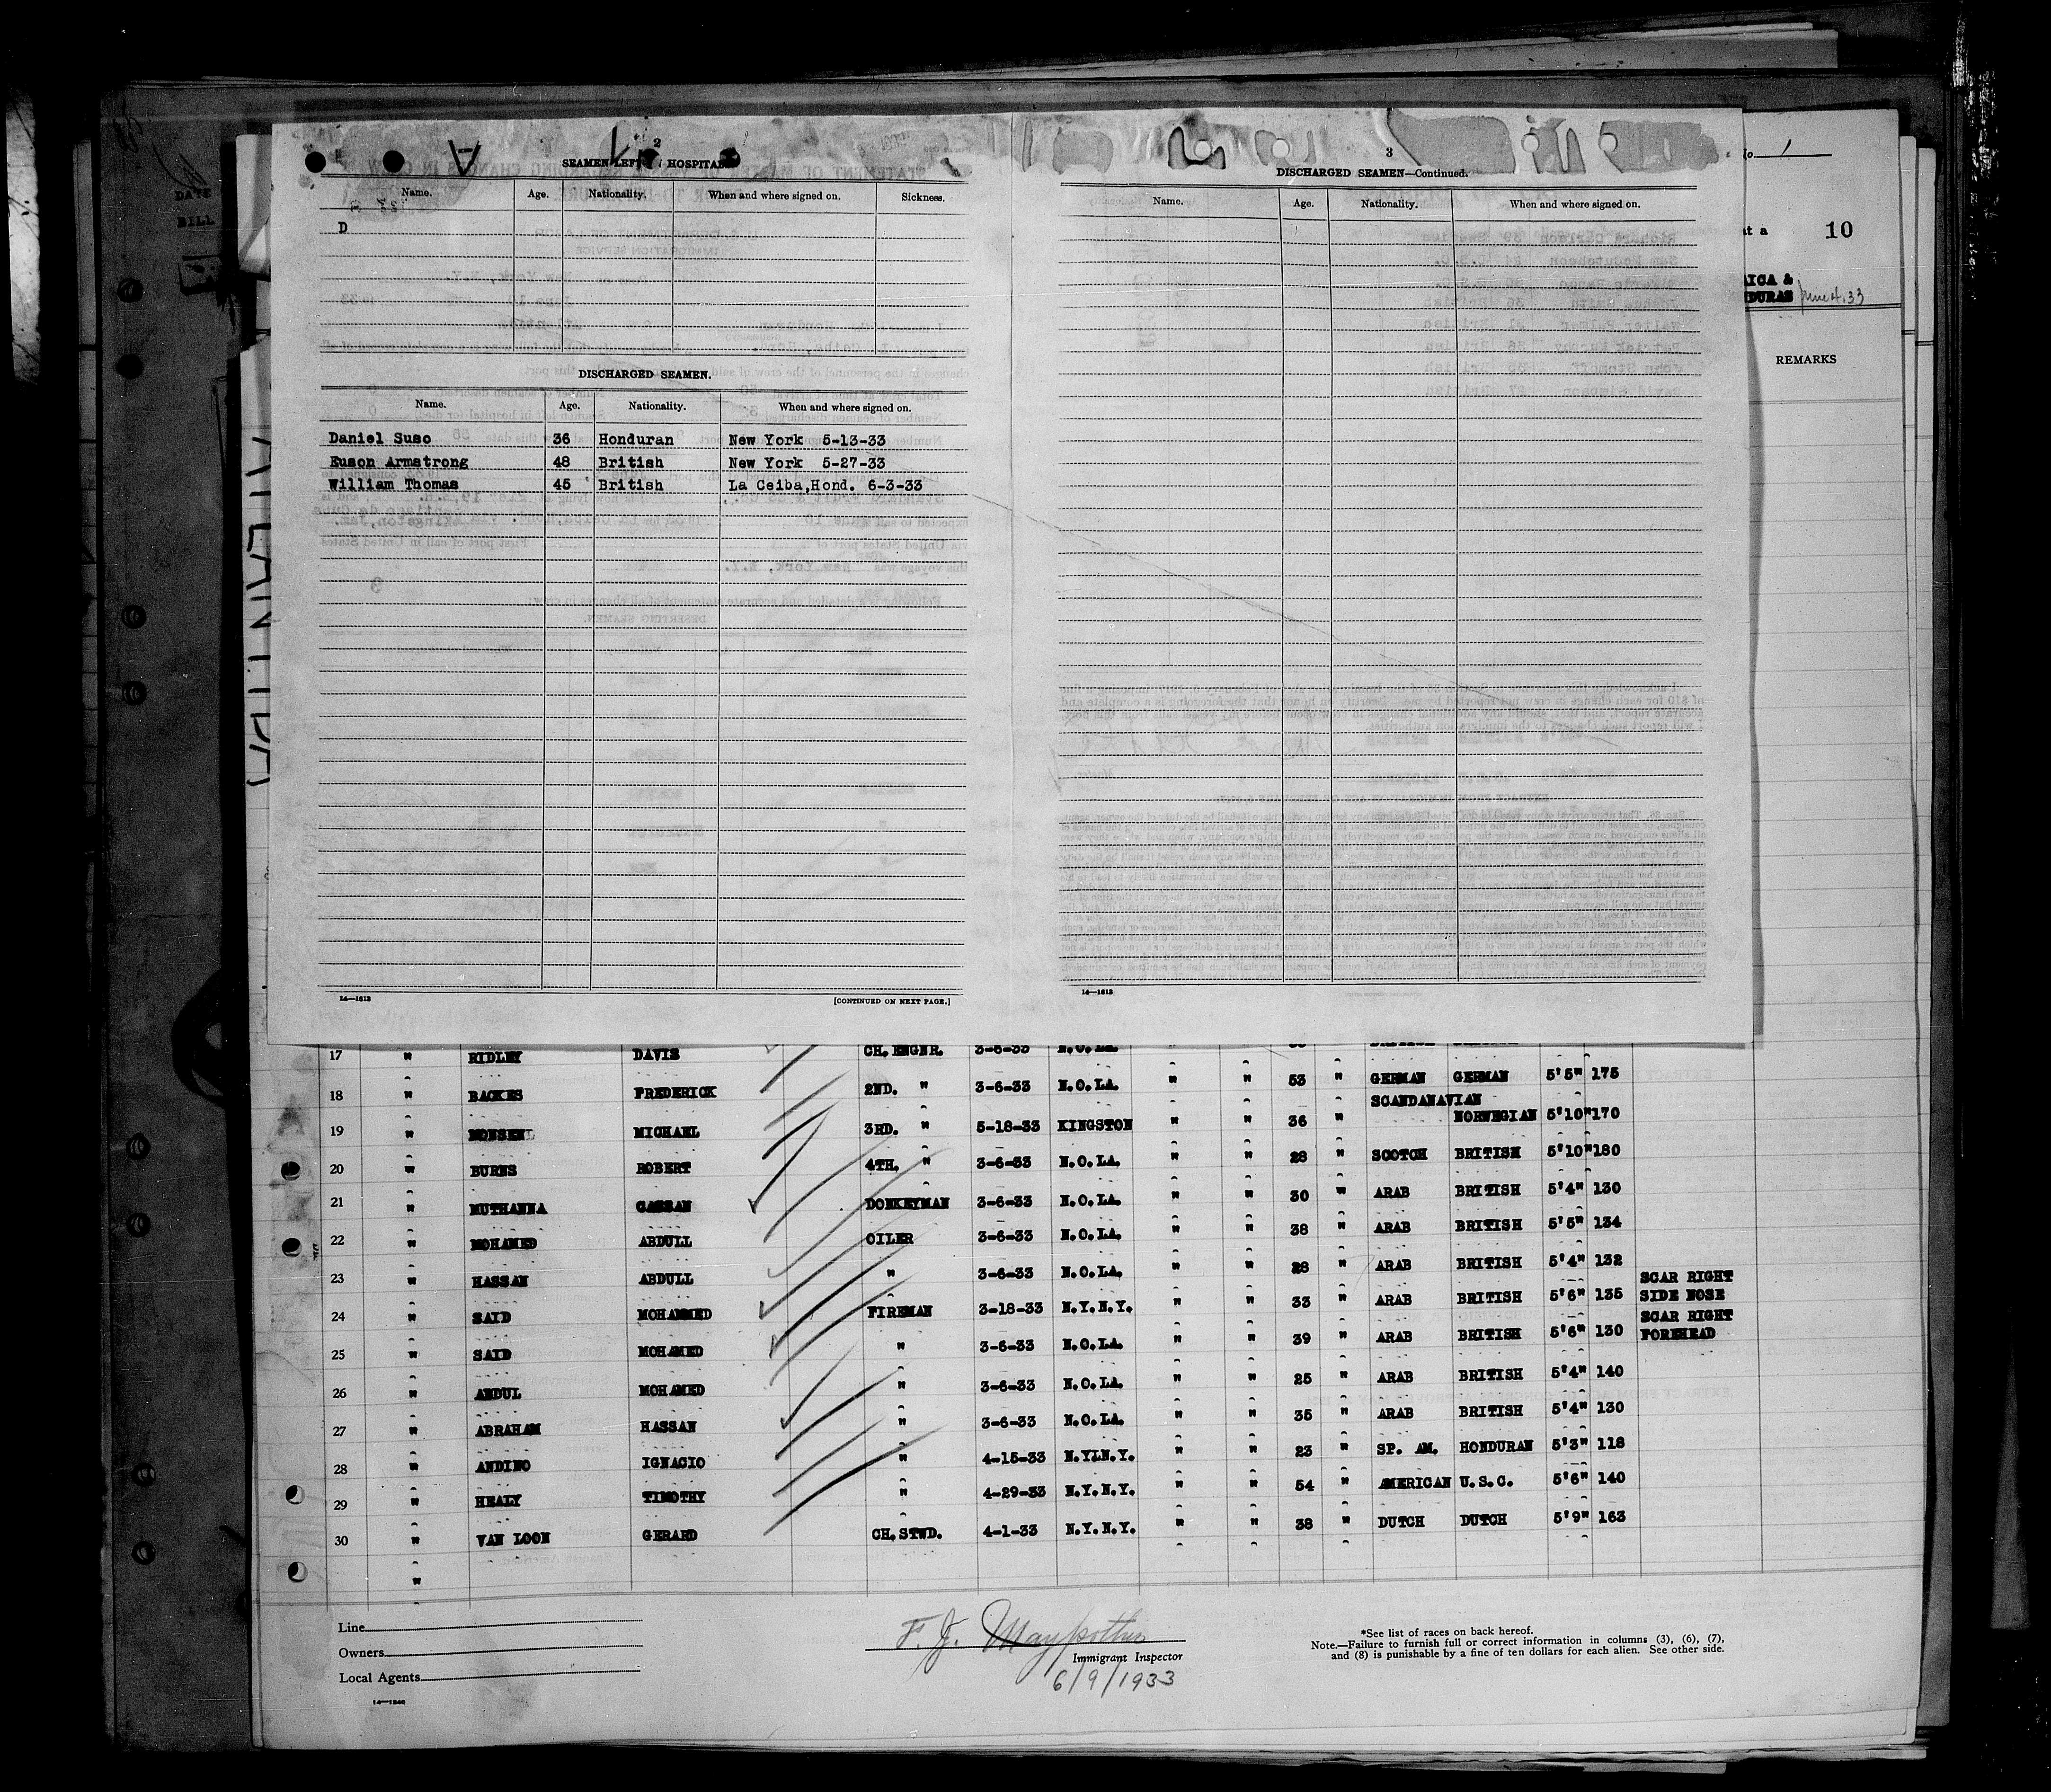 DATE
BILL
2
SEAMEN LEFT HOSPITAL
Name. Age. Nationality. When and where signed on. Sickness.
D
DISCHARGED SEAMEN.
Name. Age. Nationality. When and where signed on.
Daniel Suso 36 Honduran New York 5-13-33
Euson Armstrong 48 British New York 5-27-33
William Thomas 45 British La Ceiba,Hond. 6-3-33
14—1613
[CONTINUED ON NEXT PAGE.]
3
DISCHARGED SEAMEN—Continued.
Name. Age. Nationality. When and where signed on.
14—1613
No. 1
at a 10
RICA &
DURAS June 4.33
REMARKS
17 " RIDLEY DAVIS CH. ENGNR. 3-6-33 N.O.LA.
18 " BACKES FREDERICK 2ND. " 3-6-33 N.O.LA. " " 53 " GERMAN GERMAN 5'5" 175
19 " MONSEN MICHAEL 3RD. " 5-18-33 KINGSTON " " 36 " SCANDANAVIAN NORWEGIAN 5'10" 170
20 " BURNS ROBERT 4TH. " 3-6-33 N.O.LA. " " 28 " SCOTCH BRITISH 5'10" 180
21 " MUTHANNA GASSAN DONKEYMAN 3-6-33 N.O.LA. " " 30 " ARAB BRITISH 5'4" 130
22 " MOHAMED ABDULL OILER 3-6-33 N.O.LA. " " 38 " ARAB BRITISH 5'5" 134
23 " HASSAN ABDULL " 3-6-33 N.O.LA. " " 28 " ARAB BRITISH 5'4" 132
24 " SAID MOHAMMED FIREMAN 3-18-33 N.Y.N.Y. " " 33 " ARAB BRITISH 5'6" 135 SCAR RIGHT SIDE NOSE
25 " SAID MOHAMED " 3-6-33 N.O.LA. " " 39 " ARAB BRITISH 5'6" 130 SCAR RIGHT FOREHEAD
26 " ABDUL MOHAMED " 3-6-33 N.O.LA. " " 25 " ARAB BRITISH 5'4" 140
27 " ABRAHAM HASSAN " 3-6-33 N.O.LA. " " 35 " ARAB BRITISH 5'4" 130
28 " ANDINO IGNACIO " 4-15-33 N.Y.N.Y. " " 23 " SP. AM. HONDURAN 5'3" 118
29 " HEALY TIMOTHY " 4-29-33 N.Y.N.Y. " " 54 " AMERICAN U.S.C. 5'6" 140
30 " VAN LOON GERARD CH. STWD. 4-1-33 N.Y.N.Y. " " 38 " DUTCH DUTCH 5'9" 163
"
Line
Owners
Local Agents
14—1240
F. J. Maypother
Immigrant Inspector
6/9/1933
*See list of races on back hereof.
Note.—Failure to furnish full or correct information in columns (3), (6), (7),
and (8) is punishable by a fine of ten dollars for each alien. See other side.